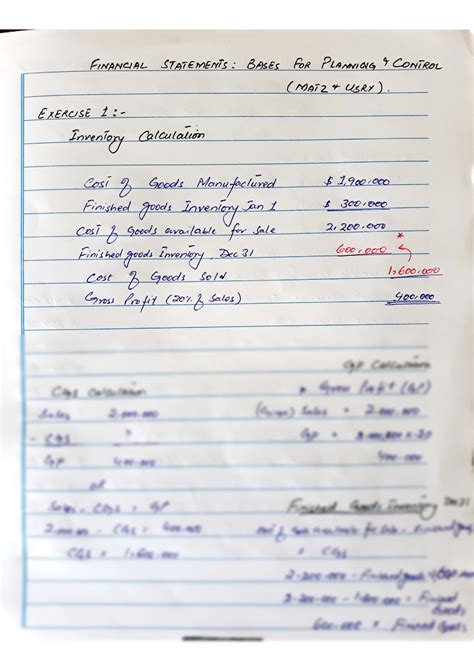 FINANCIAL STATEMENTS: BASES FOR PLANNING & CONTROL
(MATZ & USRY).
EXERCISE 1:-
Inventory Calculation
Cost of Goods Manufactured $ 1,900,000
Finished goods Inventory Jan 1 $ 300,000
Cost of Goods available for sale 2,200,000
Finished goods Inventory Dec 31 600,000 *
Cost of Goods Sold 1,600,000
Gross Profit (20% of Sales) 400,000
GP Calculation
CGS Calculation Gross Profit (GP)
Sales 2,000,000 Sales = 2,000,000
- CGS ? GP =
GP 400,000 400,000
or
Sales - CGS = GP Finished Goods Inventory Dec 31
2,000,000 - CGS = 400,000 for Sale -
CGS = 1,600,000 = CGS
2,200,000 - Finished goods =
2,200,000 - 1,600,000 = Finished Goods
600,000 = Finished Goods